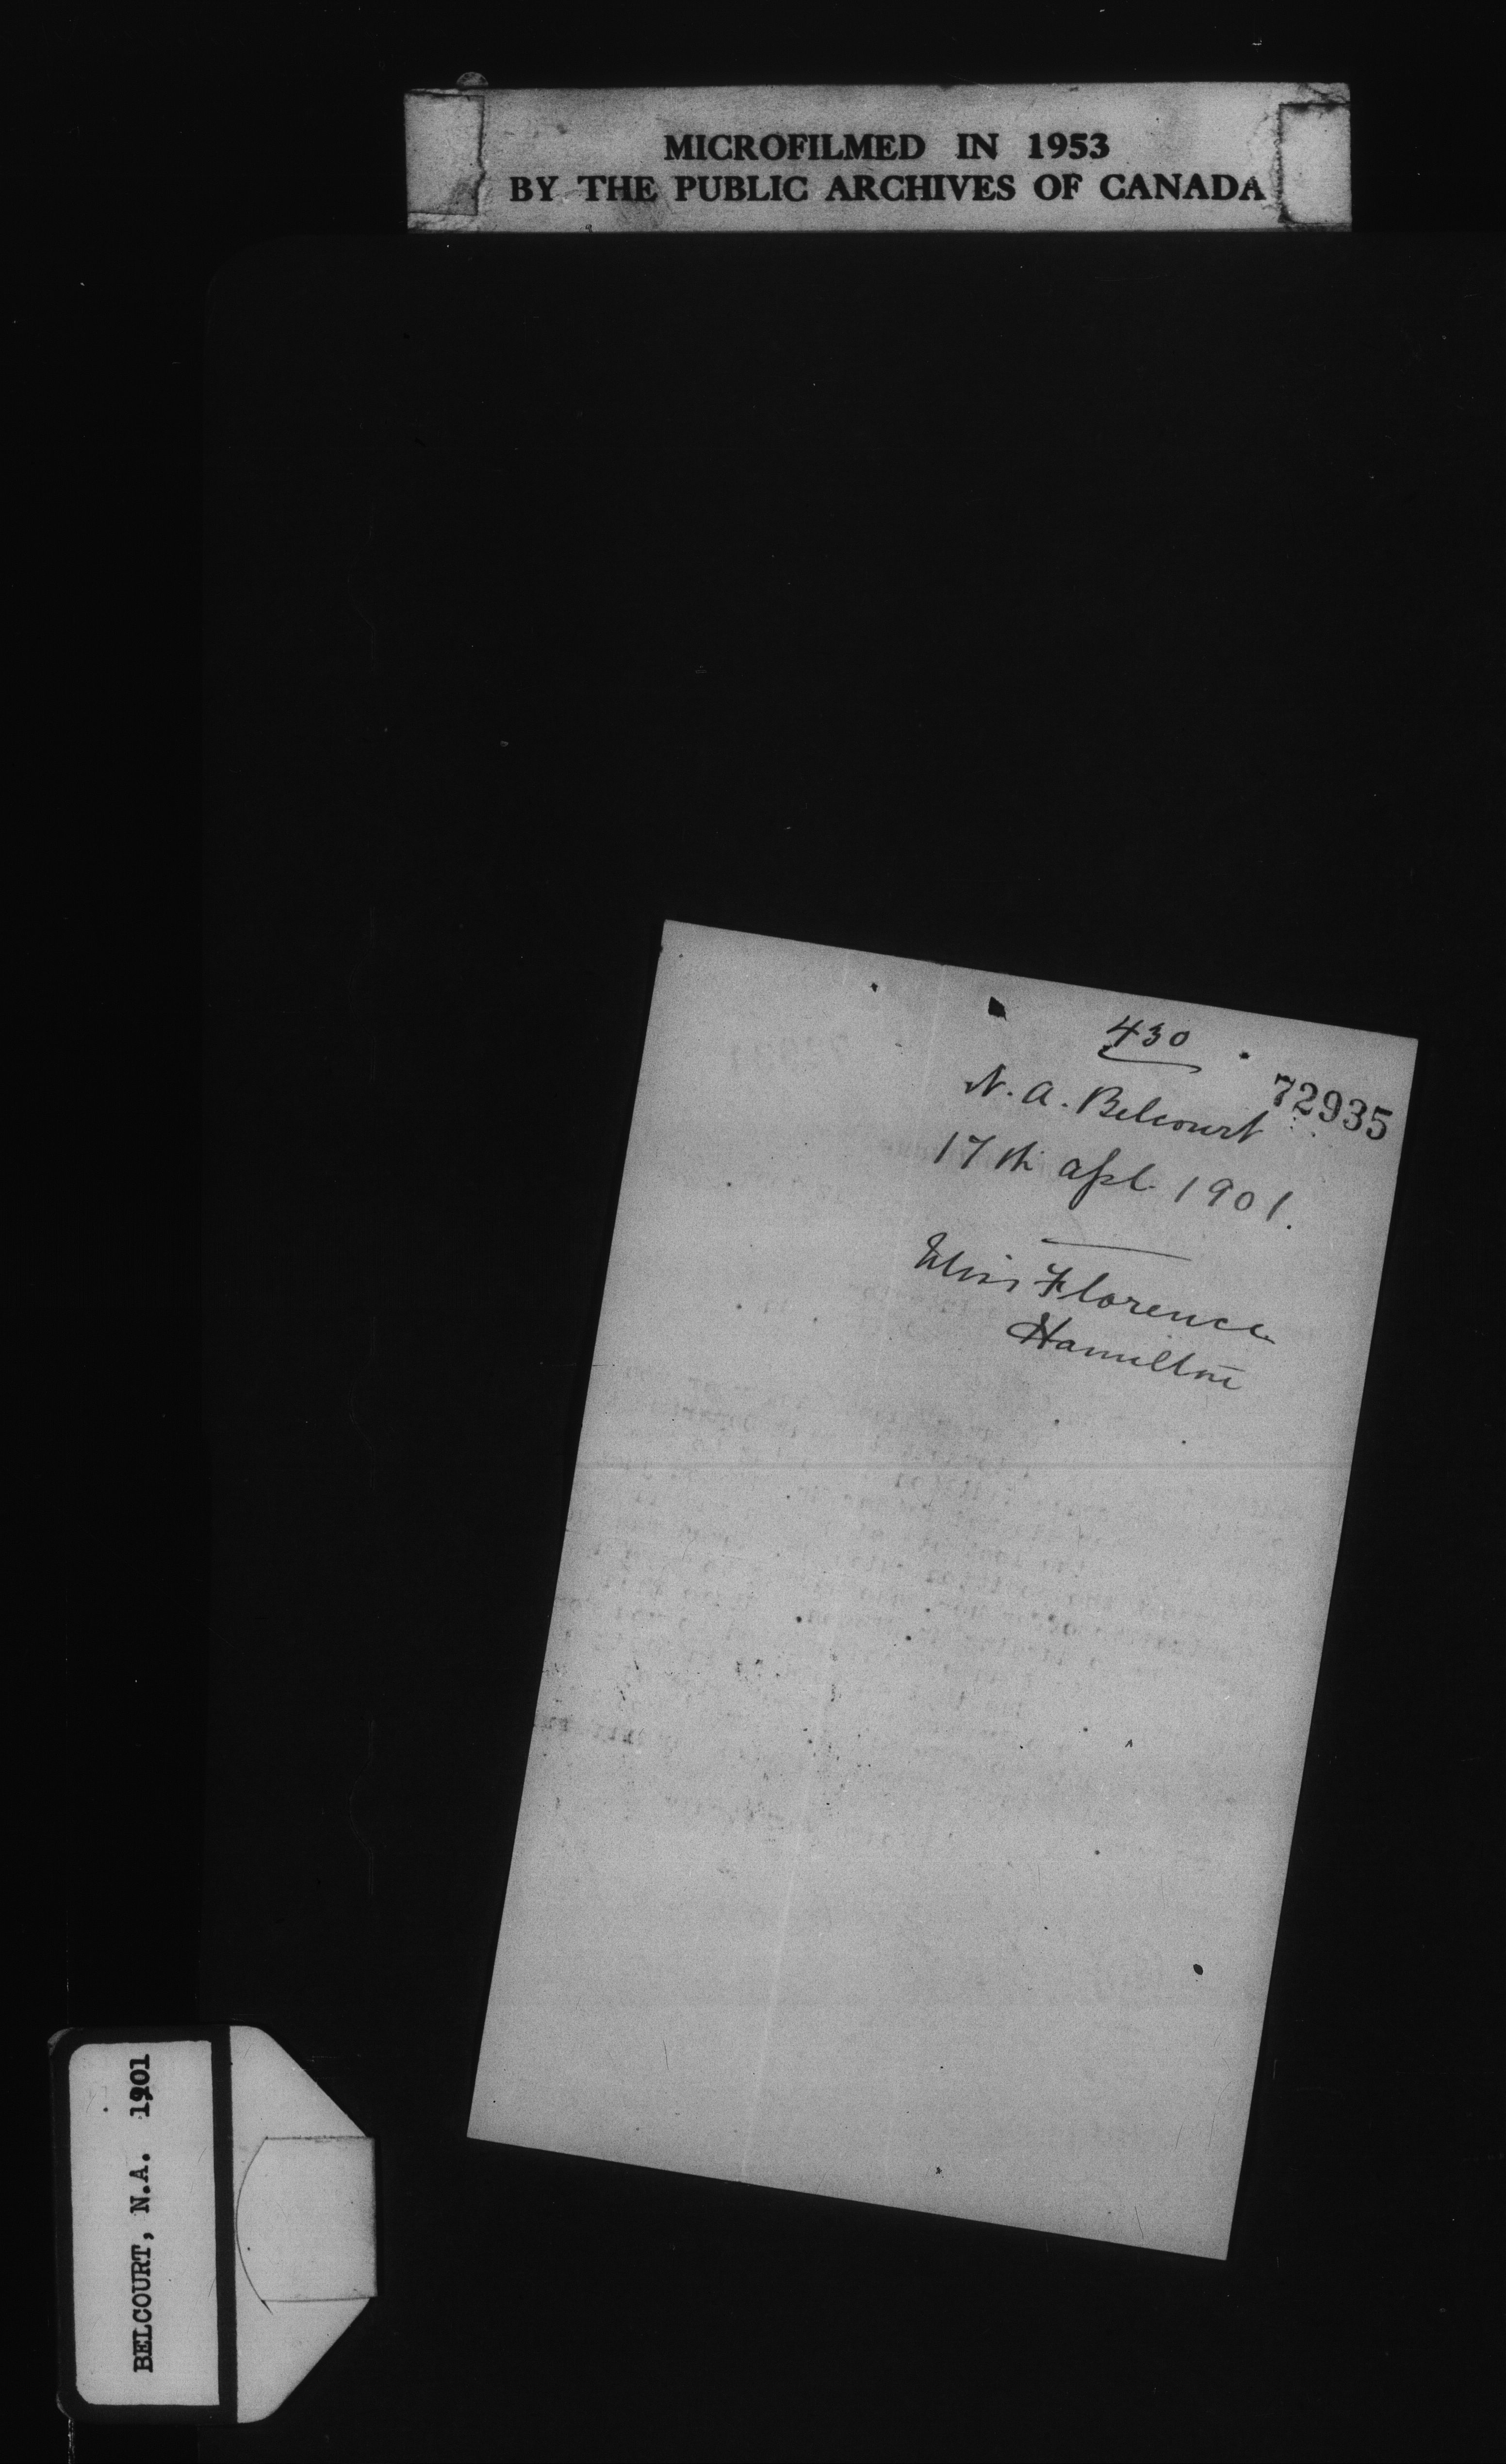 MICROFILMED IN 1953
BY THE PUBLIC ARCHIVES OF CANADA
430
72935
N. A. Belcourt
17th Apl. 1901.
Miss Florence
Hamilton
BELCOURT, N.A. 1901